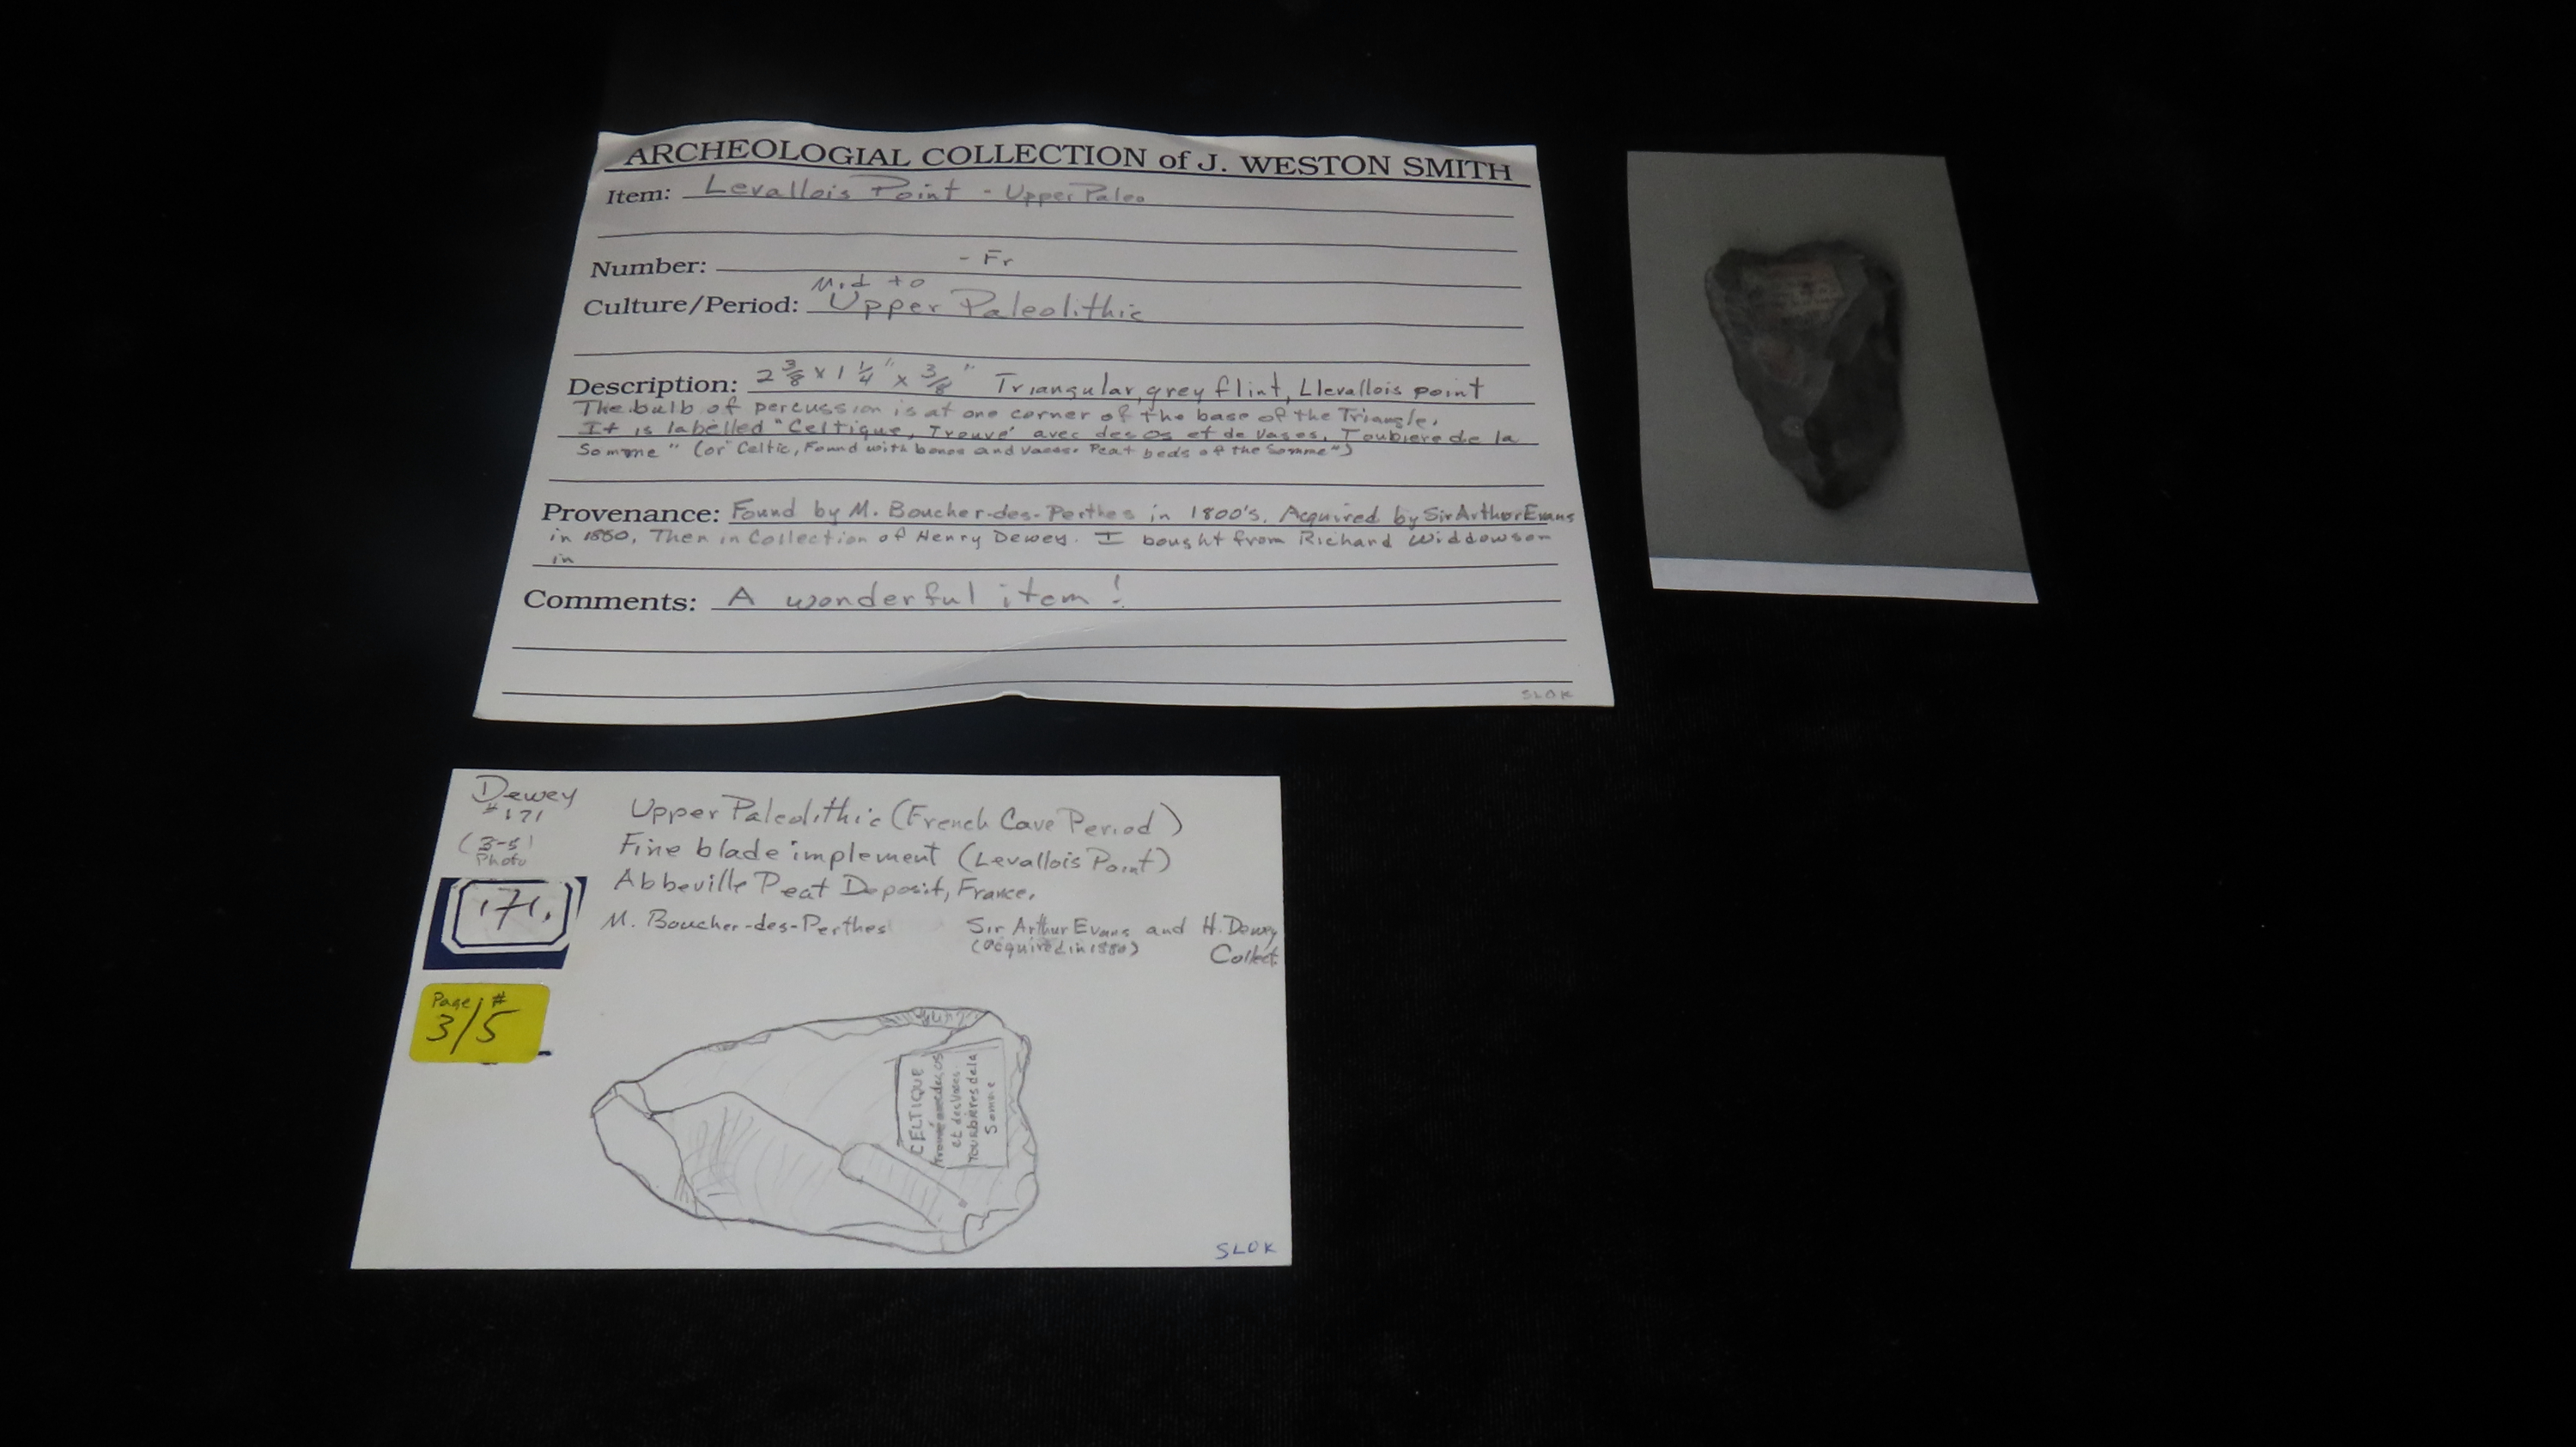 ARCHEOLOGIAL COLLECTION of J. WESTON SMITH
Item: Levallois Point - Upper Paleo
Number: - Fr
Mid to
Culture/Period: Upper Paleolithic
Description: 2 3/8 x 1 1/4" x 3/8" Triangular, grey flint, Llevallois point
The bulb of percussion is at one corner of the base of the Triangle.
It is labelled "Celtique, Trouvé avec des os et de Vases, Toubiere de la
Somme" (or "Celtic, Found with bones and vases. Peat beds of the Somme")
Provenance: Found by M. Boucher-des-Perthes in 1800's. Acquired by Sir Arthur Evans
in 1880, Then in Collection of Henry Dewey. I bought from Richard Widdowson
in
Comments: A wonderful item!
SLOK
Dewey
#171
(3-5)
Photo
171.
Page / #
3/5
Upper Paleolithic (French Cave Period)
Fine blade implement (Levallois Point)
Abbeville Peat Deposit, France.
M. Boucher-des-Perthes Sir Arthur Evans and H. Dewey
(acquired in 1880) Collect.
CELTIQUE
trouvé avec des os
et des Vases
Tourbières de la
Somme
SLOK